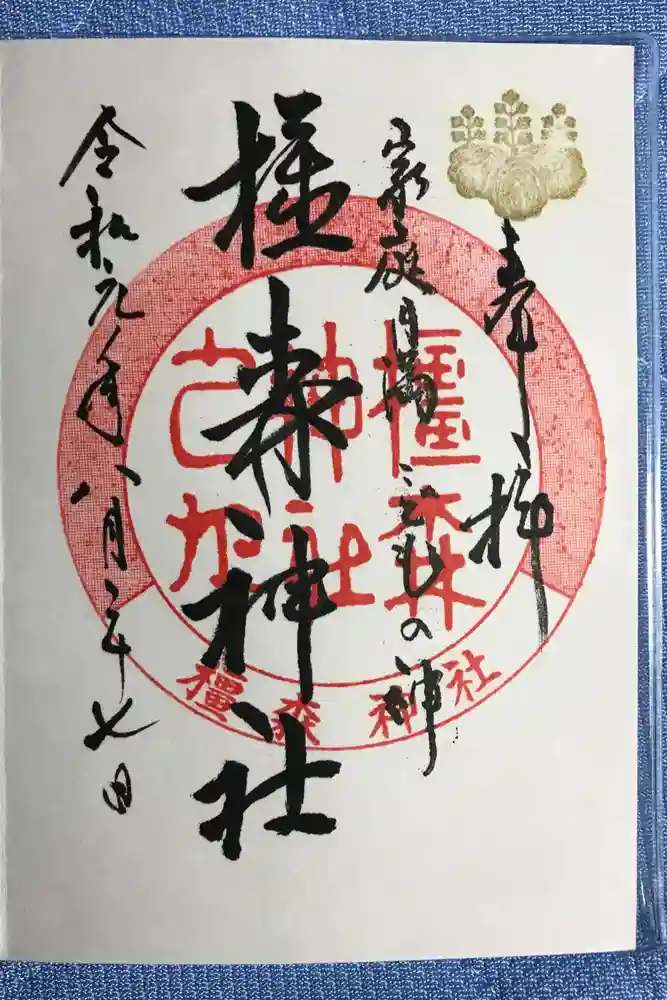 奉拝
家庭円満こどもの神
橿森神社
令和元年八月二十七日
橿森
神社
橿森神社